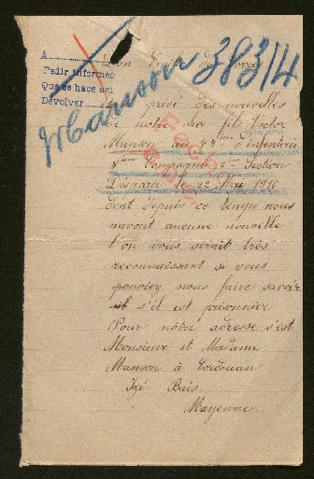 A
Pedir informes
Que se hace así
Devolver
Manson 383/4
de notre cher fils Victor
Manson au 47 d'infanterie
8ème Compagnie 2me Section
Disparu le 22 Mai 1916
Dont depuis ce temps nous
navont aucune nouvelle
l'on vous serait très
reconnaissant si vous
pouviez nous faire savoir
s'il est prisonnier
Pour notre adresse s'est
Monsieur et Madame
Manson à Cordouan
Izé Bais
Mayenne